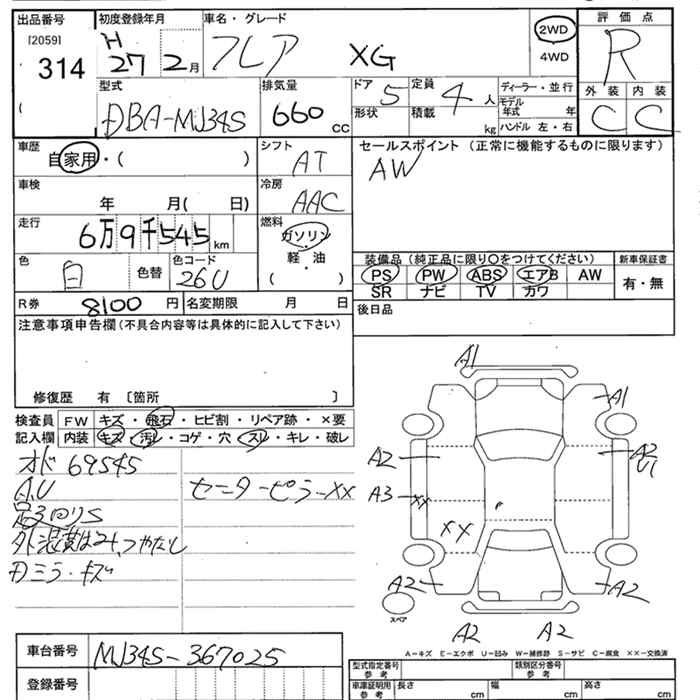 出品番号 初度登録年月 車名・グレード 評価点
[2059] H 2WD
314 27 2月 フレア XG 4WD R
型式 排気量 ドア 定員 ディーラー・並行 外装 内装
DBA-MJ34S 660 cc 5 4人 モデル年式 年 C C
形状 積載 kg ハンドル 左・右
車歴 自家用・( ) シフト AT セールスポイント (正常に機能するものに限ります)
AW
車検 年 月( 日) 冷房 AAC
走行 6万9千545km 燃料 ガソリン・軽・油
( )
色 白 色替 色コード 26U
装備品 (純正品に限り○をつけてください) 新車保証書
PS PW ABS エアB AW 有・無
SR ナビ TV カワ
R券 8100円 名変期限 月 日 後日品
注意事項申告欄(不具合内容等は具体的に記入して下さい)
修復歴 有 〔箇所 〕
検査員 FW キズ・飛石・ヒビ割・リペア跡・×要
記入欄 内装 キズ・汚レ・コゲ・穴・スレ・キレ・破レ
オド 69545
A,U センターピラーXX
足3回りS
外装
ミラーキズ
A1
A1
A2 A2
U1
A3 XX
XX
A2 A2
スペア
A2 A2
A-キズ E-エクボ U-凹み W-補修跡 S-サビ C-腐食 XX-交換済
車台番号 MJ34S-367025
登録番号
型式指定番号 参考 類別区分番号 参考
車庫証明用 参考 長さ cm 幅 cm 高さ cm